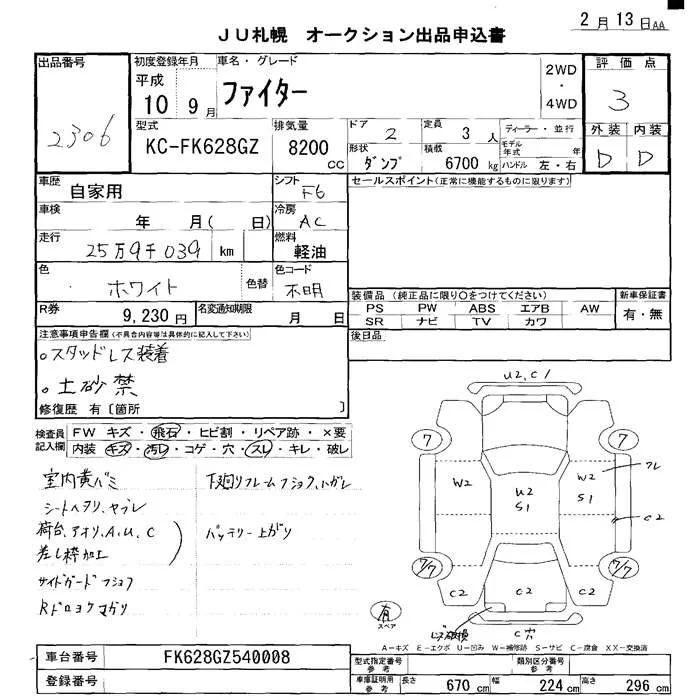 2月13日AA
JU札幌 オークション出品申込書
出品番号
2306
初度登録年月
平成
10 9月
車名・グレード
ファイター
2WD
・
4WD
評価点
3
外装 内装
D D
型式
KC-FK628GZ
排気量
8200
CC
ドア 2
定員 3 人
ディーラー・並行
モデル年式 年
形状 ダンプ
積載 6700 kg
ハンドル 左・右
車歴
自家用
シフト F6
セールスポイント(正常に機能するものに限ります)
車検
年 月( 日)
冷房 AC
走行
25万9千039 km
燃料
軽油
色
ホワイト
色替
色コード
不明
装備品(純正品に限り○をつけてください)
新車保証書
PS PW ABS エアB AW
SR ナビ TV カワ
有・無
R券
9,230円
名変通知期限
月 日
後日品
注意事項申告欄(不具合内容等は具体的に記入して下さい)
○スタッドレス装着
○土砂禁
修復歴 有〔箇所 〕
検査員記入欄
FW キズ・飛石・ヒビ割・リペア跡・×要
内装 キズ・汚レ・コゲ・穴・スレ・キレ・破レ
室内黄バミ
シートヘタリ、ヤブレ
荷台、アオリ、A、U、C
差し枠加工
サイドガードフショク
Rドロヨケマガリ
下廻りフレームフショク、ハガレ
バッテリー上がり
U2,C1
7 7
W2
U2
S1
W2
S1
フレ
C2
7/7 7/7
C2 C2 C2
有
スペア
レンズ破損
C穴
A-キズ E-エクボ U-凹み W-補修跡 S-サビ C-腐食 XX-交換済
車台番号
FK628GZ540008
登録番号
型式指定番号
参考
類別区分番号
参考
車庫証明用
参考
長さ 670 cm
幅 224 cm
高さ 296 cm